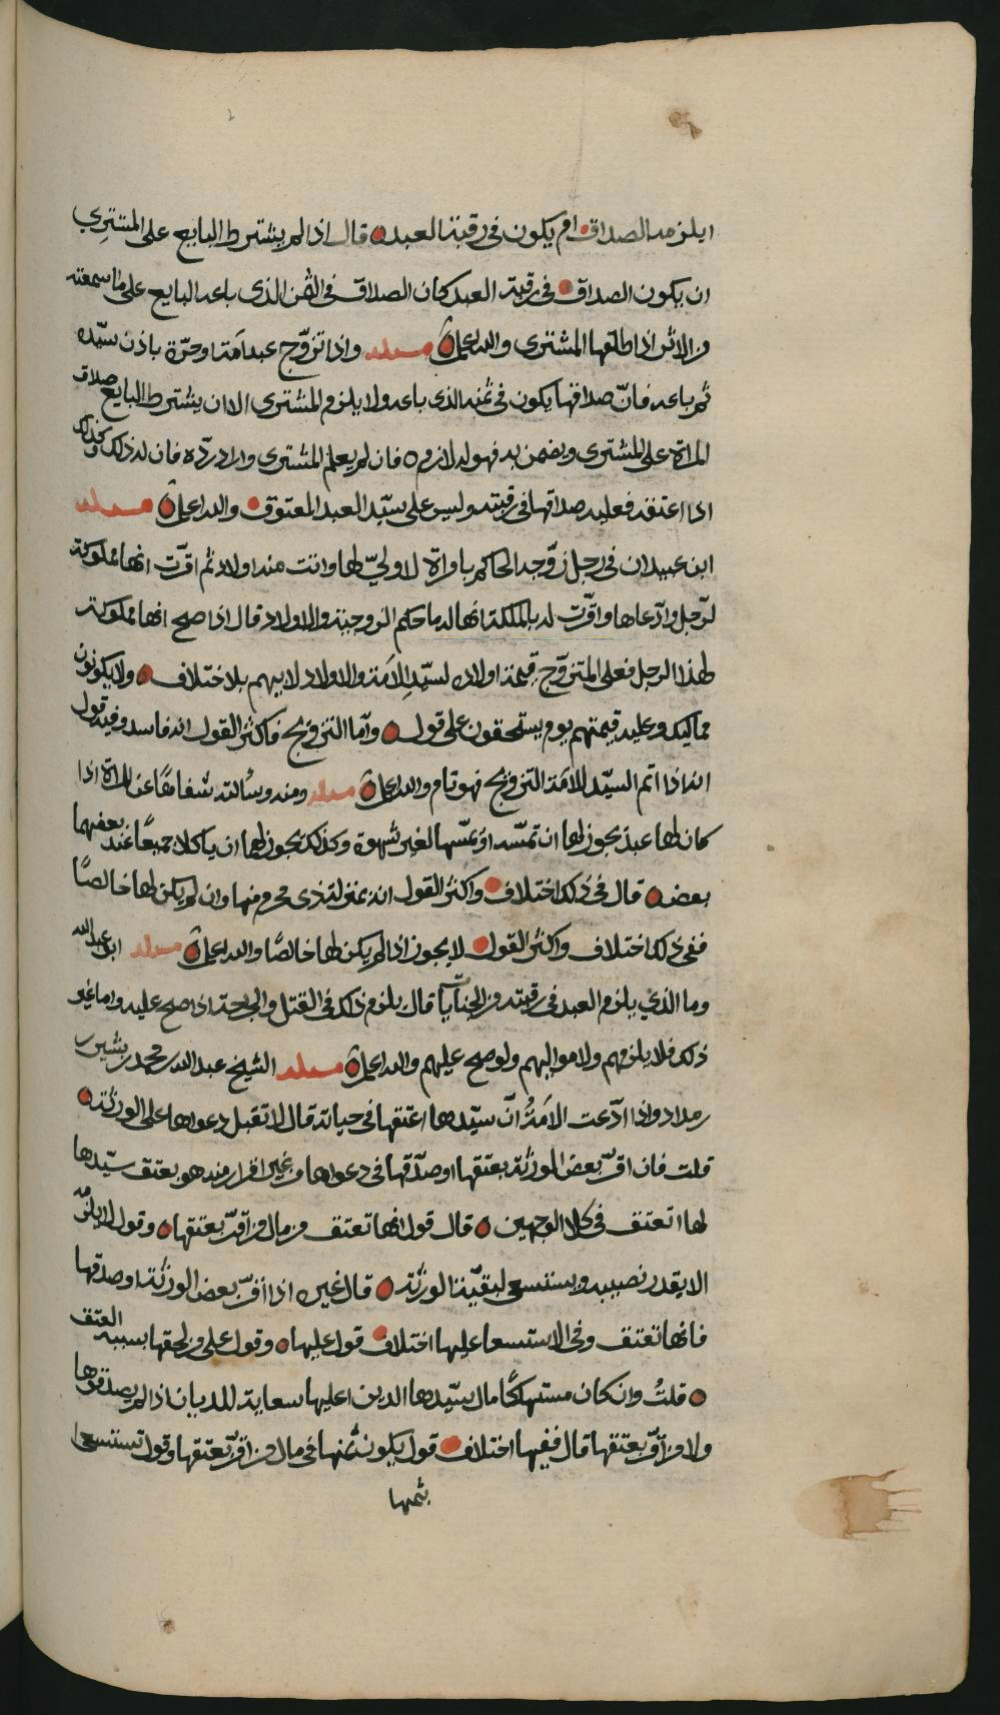 ايلزمه الصداق ام يكون في رقبة العبد قال اذا لم يشترط البايع على المشتري
ان يكون الصداق في رقبة العبد كان الصداق في الثمن الذى باعه البايع على ما سمعته
من الاثر اذا طلقها المشترى والله اعلم مسئلة واذا تزوّج عبد اَمة او حرّة باذن سيّده
ثم باعه فانّ صداقها يكون في ثمنه الذى باعه ولا يلزم المشترى الا ان يشترط البايع صداق
المراة على المشترى ويضمن به فهو له لازم فان لم يعلم المشترى واراد ردّه فان له ذلك وكذلك
اذا اعتقه فعليه صداقها في رقبته وليس على سيّد العبد المعتوق والله اعلم مسئلة
ابن عبيدان في رجل زوّجه الحاكم بامراة لا وليّ لها واتت منه اولاد ثم اقرّت انها مملوكة
لرّجل وادّعاها واقرّت له بالملكة انها له ما حكم الزوجية والاولاد قال اذا صح انها مملوكة
لهذا الرجل فعلى المتزوّج قيمة اولاده لسيّد الاَمة والاولاد لابيهم بلا ختلاف ولا يكونون
مماليك وعليه قيمتهم يوم يستحقون على قول وامّا التزويج فاكثر القول انه فاسد وفيه قول
انه اذا اتم السيّد للاَمة التزويج فهو تام والله اعلم مسئلة ومنه وسألته شفاهًا عن المراة اذا
كان لها عبد يجوز لها ان تمسّه او يمسّها لغير شهوة وكذلك يجوز لهما ان ياكلا جميعًا عند بعضهما
بعض قال في ذلك اختلاف واكثر القول انه بمنزلة ذى محرم منها وان لم يكن لها خالصًا
ففي ذلك اختلاف واكثر القول لا يجوز اذا لم يكن لها خالصًا والله اعلم مسئلة ابن عبدالله
وما الذي يلزم العبد في رقبته من الجنايات قال يلزم ذلك في القتل والجراحة اذا صح عليه واما غير
ذلك فلا يلزمهم ولا مواليهم ولو صح عليهم والله اعلم مسئلة الشيخ عبدالله بن محمد بن بشير بن
مداد واذا ادّعت الاَمةُ انّ سيّدها اعتقها في حياته قال لا تقبل دعواها على الورثة
قلت فان اقرّ بعض الورثة بعتقها او صدّقها في دعواها من غير اقرار منه هو بعتق سيّدها
لها اتعتق في كلا الوجهين قال قول انها تعتق من مال من اقرّ بعتقها وقول لا يلزمه
الا بقدر نصيبه ويستسعى لبقيّة الورثة قال غيره اذا اقرّ بعض الورثة او صدقها
فانها تعتق وفي الاستسعا عليها اختلاف قول عليها وقول على من لحقها بسببه العتق
قلتُ وان كان مستهلكًا مال سيّدها الدين اعليها سعاية للديان اذا لم يصدقوها
ولا من اقرّ بعتقها قال ففيها اختلاف قول يكون ثمنها في مال من اقرّ بعتقها وقول تستسعى
بثمنها